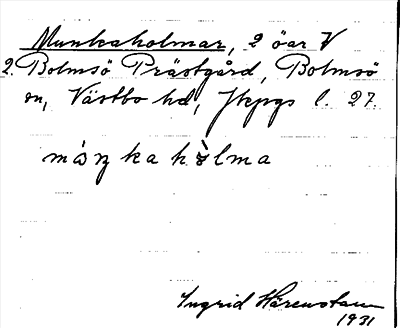 Munkaholmar, 2 öar V
2. Bolmsö Prästgård, Bolmsö
sn, Västbo hd, Jkpgs l. 27.
Ingrid Härenstam
1931